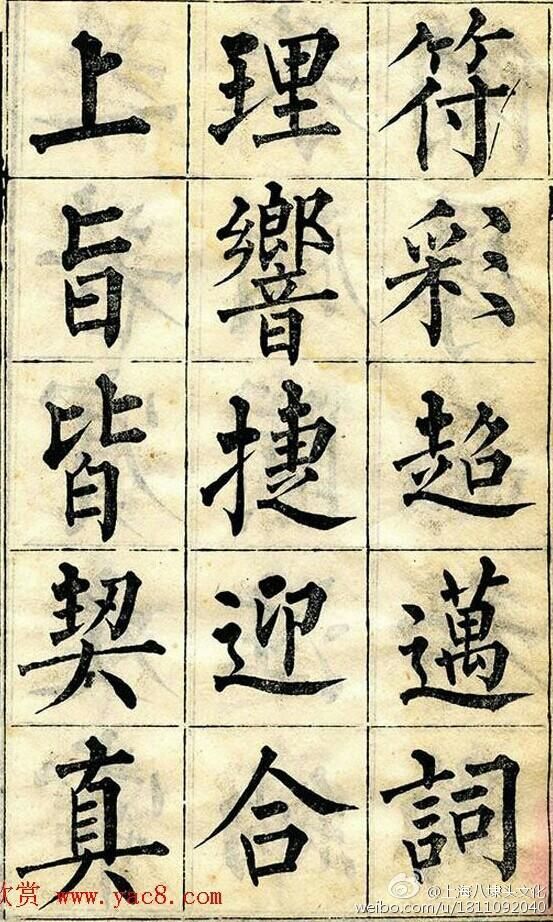 符彩超邁詞
理響捷迎合
上旨皆契真
欣赏 www.yac8.com
@上海八埭头文化
weibo.com/u/1311092040